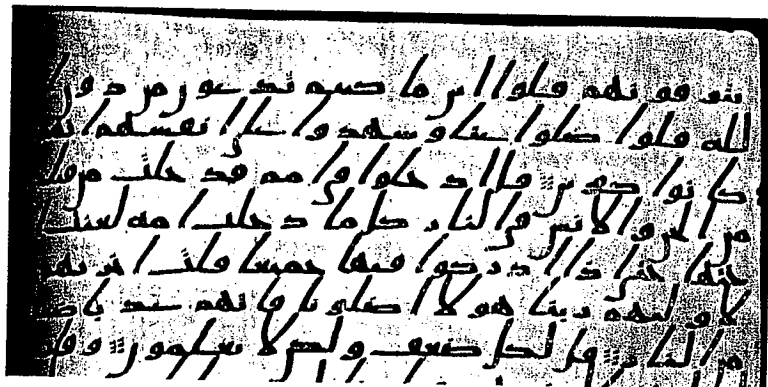 يتوفونهم قلوا اين ما كنتم تدعون من دون ا
لله قلوا ضلوا عنا وشهدوا على انفسهم انه
كانوا كفرين قل ادخلوا في امم قد خلت من قبل
من الجن والانس في النار كلما دخلت امه لعنت ا
ختها حتى اذا اداركوا فيها جميعا قلت اخريهم
لاوليهم ربنا هولا اضلونا فاتهم عذبا ضع
من النار قل لكل ضعف ولكن لا تعلمون وقل